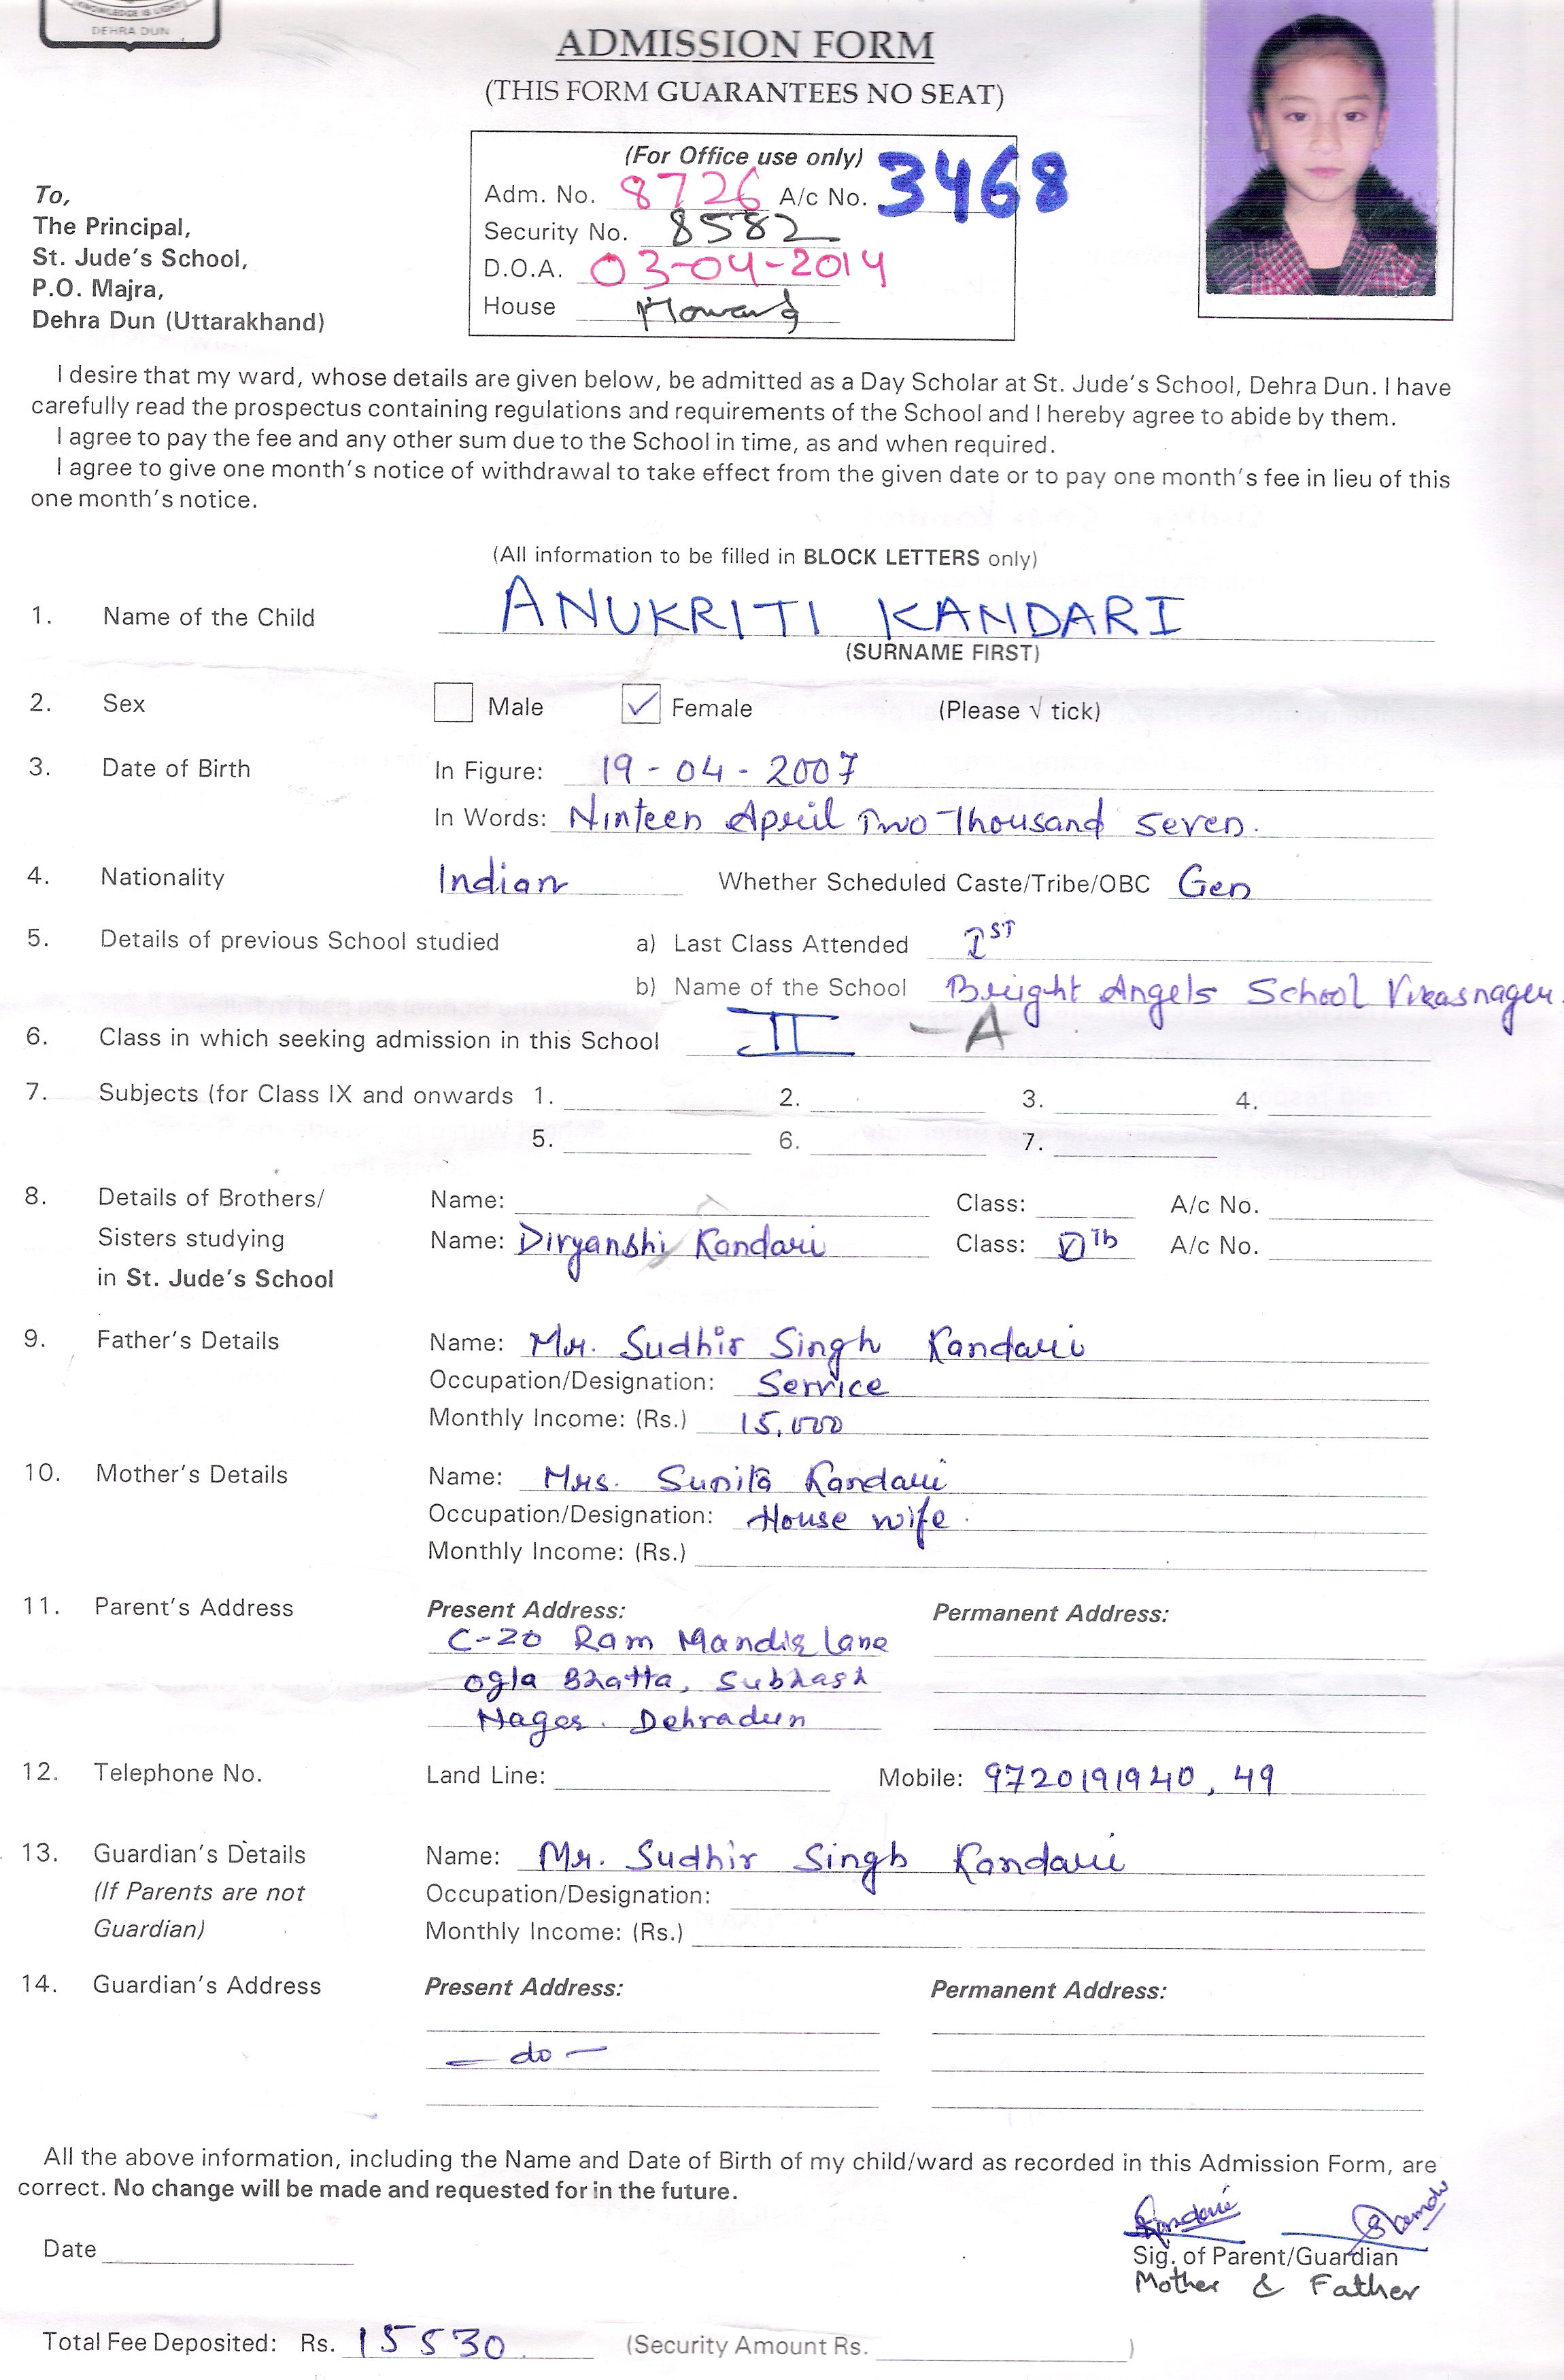 KNOWLEDGE IS LIGHT
DEHRA DUN
ADMISSION FORM
(THIS FORM GUARANTEES NO SEAT)
(For Office use only)
Adm. No. 8726 A/c No. 3468
Security No. 8582
D.O.A. 03-04-2014
House Howard
To,
The Principal,
St. Jude's School,
P.O. Majra,
Dehra Dun (Uttarakhand)
I desire that my ward, whose details are given below, be admitted as a Day Scholar at St. Jude's School, Dehra Dun. I have
carefully read the prospectus containing regulations and requirements of the School and I hereby agree to abide by them.
I agree to pay the fee and any other sum due to the School in time, as and when required.
I agree to give one month's notice of withdrawal to take effect from the given date or to pay one month's fee in lieu of this
one month's notice.
(All information to be filled in BLOCK LETTERS only)
1. Name of the Child ANUKRITI KANDARI
(SURNAME FIRST)
2. Sex Male ✓ Female (Please √ tick)
3. Date of Birth In Figure: 19-04-2007
In Words: Ninteen April Two Thousand Seven.
4. Nationality Indian Whether Scheduled Caste/Tribe/OBC Gen
5. Details of previous School studied a) Last Class Attended IST
b) Name of the School Bright Angels School Vikasnager
6. Class in which seeking admission in this School II - A
7. Subjects (for Class IX and onwards 1. 2. 3. 4.
5. 6. 7.
8. Details of Brothers/ Name: Class: A/c No.
Sisters studying Name: Divyanshi Kandari Class: Vth A/c No.
in St. Jude's School
9. Father's Details Name: Mr. Sudhir Singh Kandari
Occupation/Designation: Service
Monthly Income: (Rs.) 15,000
10. Mother's Details Name: Mrs. Sunita Kandari
Occupation/Designation: House wife.
Monthly Income: (Rs.)
11. Parent's Address Present Address: Permanent Address:
C-20 Ram Mandir lane
Ogla Bhatta, Subhash
Nager. Dehradun
12. Telephone No. Land Line: Mobile: 9720191940, 49
13. Guardian's Details Name: Mr. Sudhir Singh Kandari
(If Parents are not Occupation/Designation:
Guardian) Monthly Income: (Rs.)
14. Guardian's Address Present Address: Permanent Address:
- do -
All the above information, including the Name and Date of Birth of my child/ward as recorded in this Admission Form, are
correct. No change will be made and requested for in the future.
Kandari
Date Sig. of Parent/Guardian
Mother & Father
Total Fee Deposited: Rs. 15530 (Security Amount Rs. )